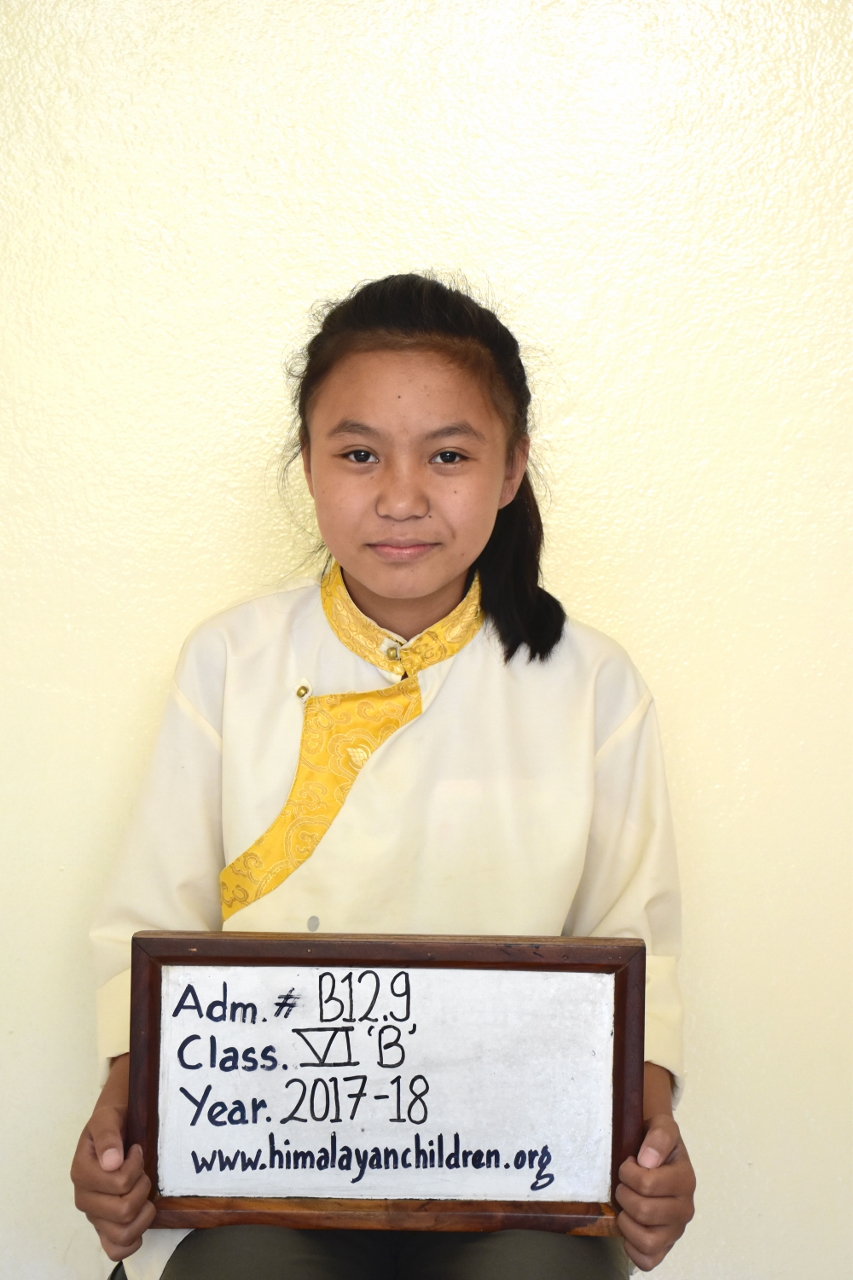 Adm. # B12.9
Class. VI 'B'
Year. 2017-18
www.himalayanchildren.org